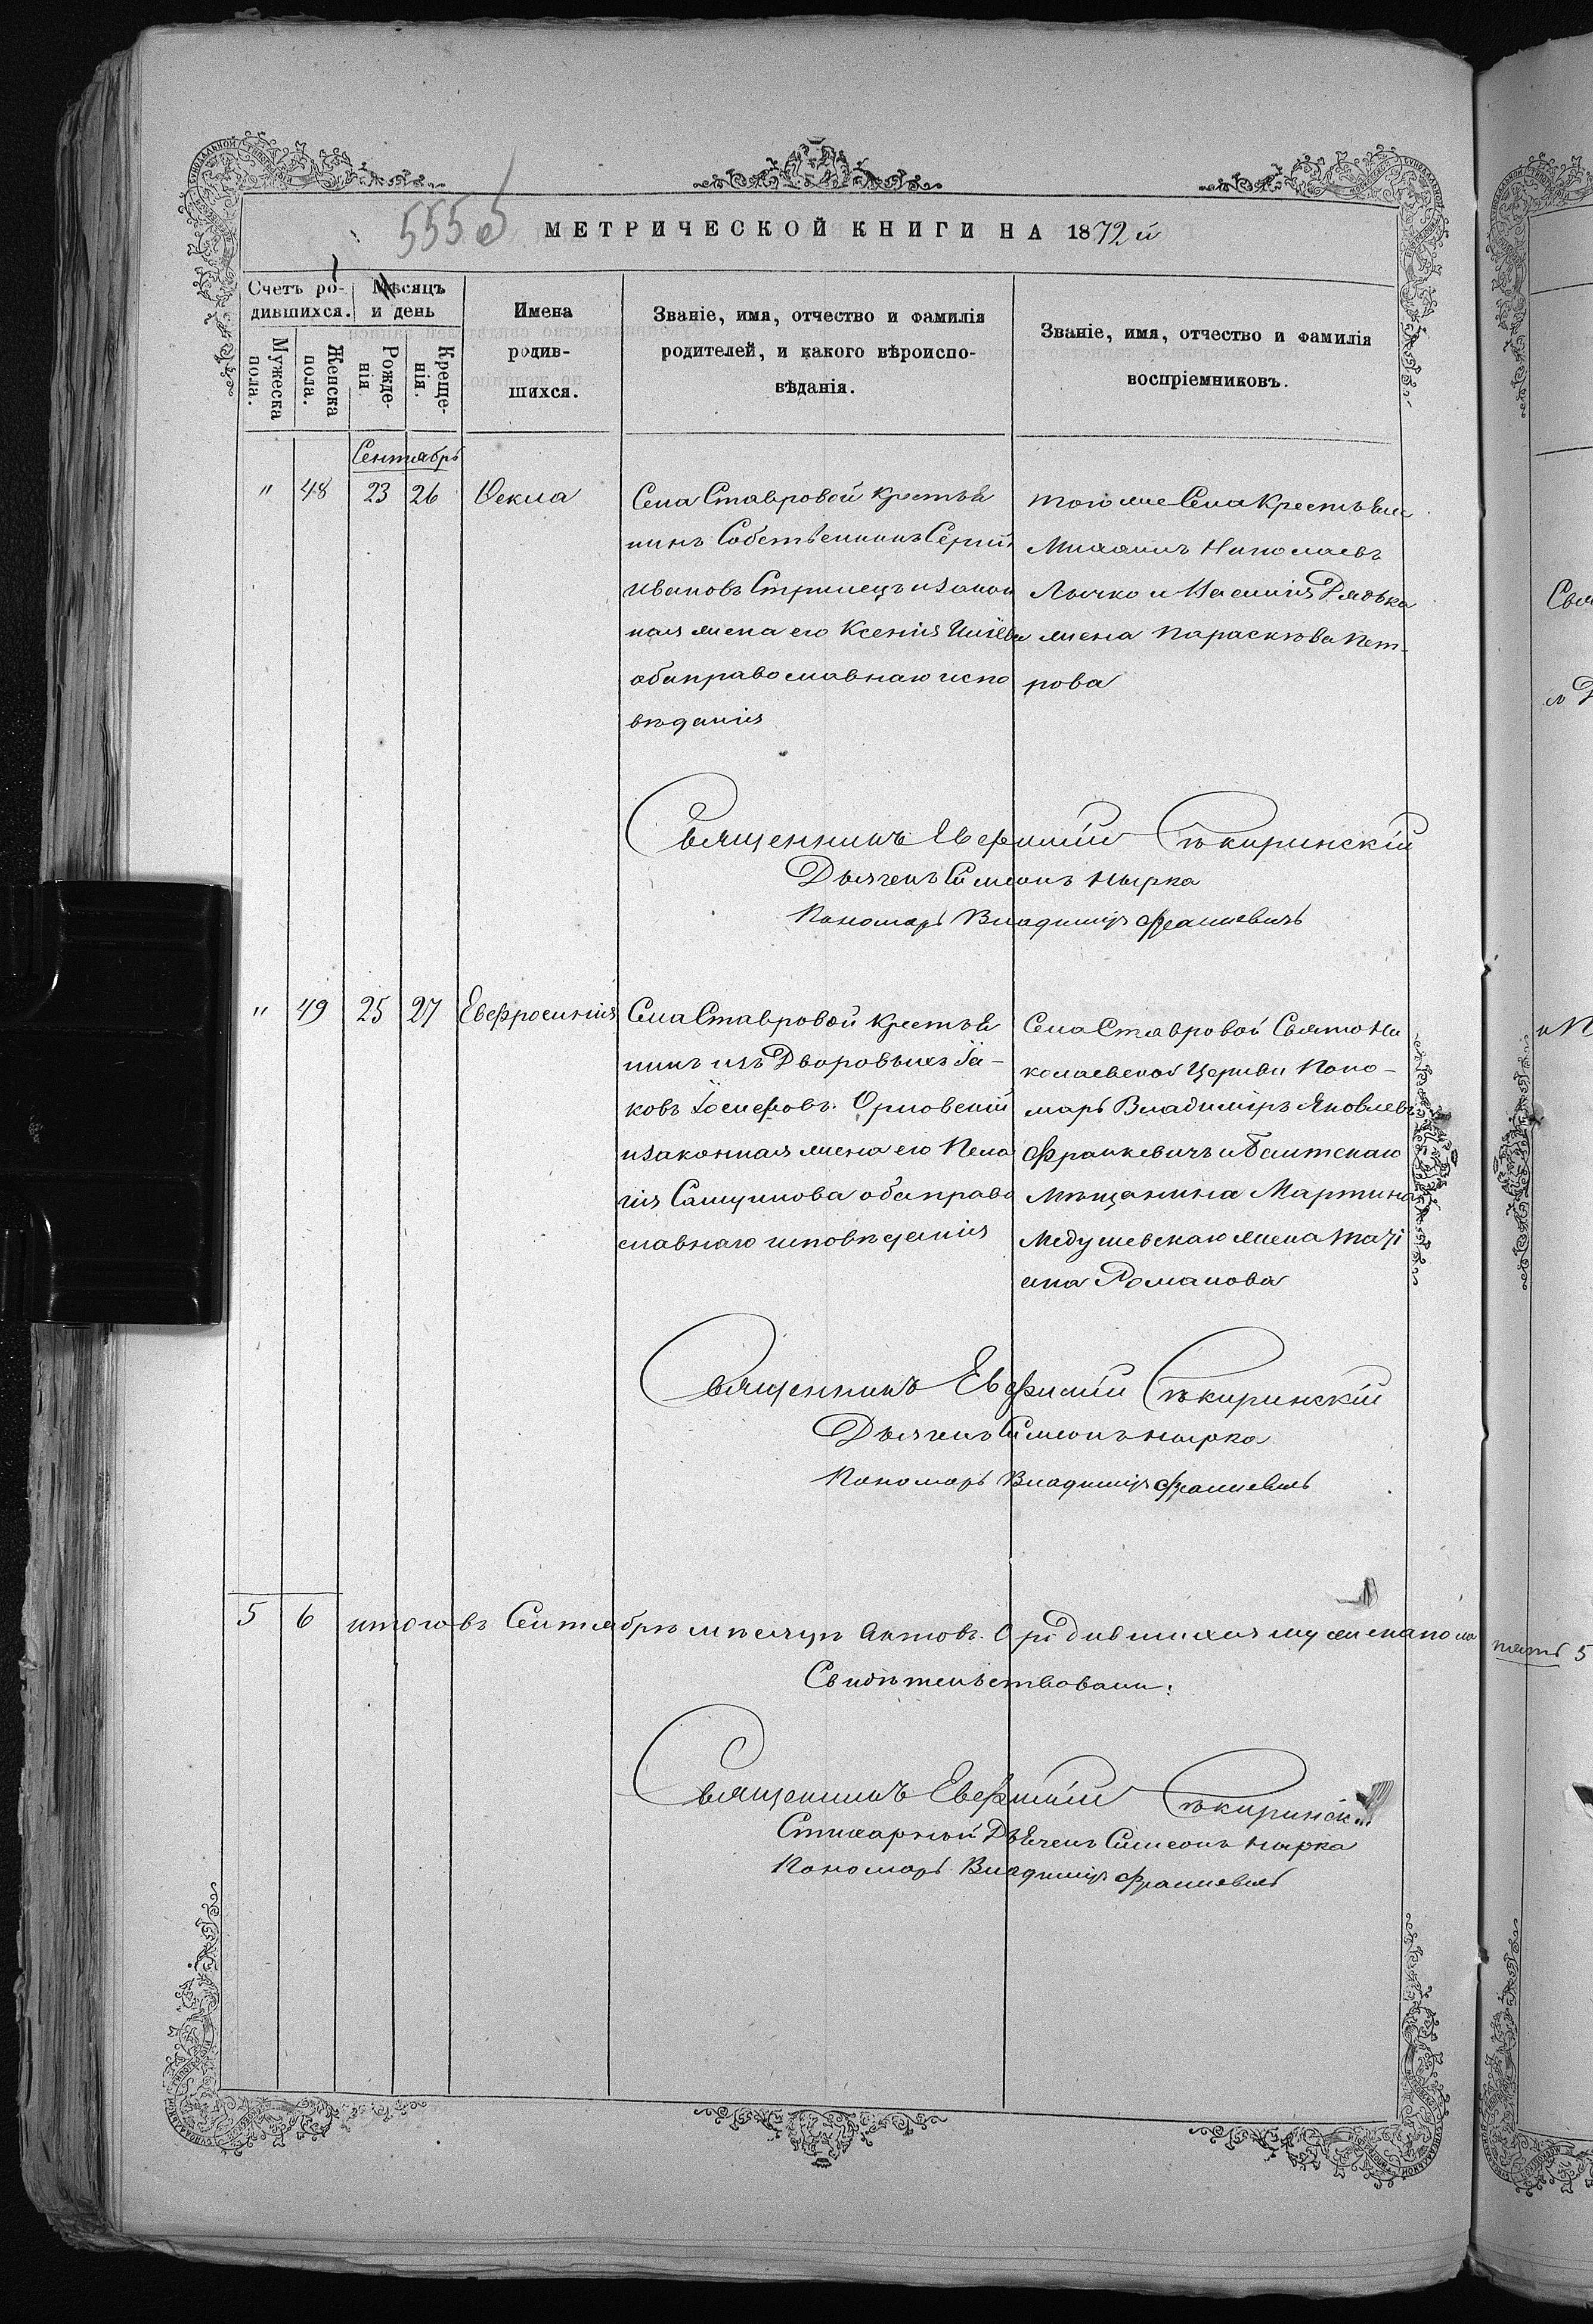 555 об
МЕТРИЧЕСКОЙ КНИГИ НА 1872й
Счетъ ро-
дившихся.
Мѣсяцъ
и день
Имена
родив-
шихся.
Званіе, имя, отчество и фамилія
родителей, и какого вѣроиспо-
вѣданія.
Званіе, имя, отчество и фамилія
воспріемниковъ.
Мужеска
пола.
Женска
пола.
Рожде-
нія
Креще-
нія.
Сентябрь
" 48 23 26 Ѳекла
Села Ставровой крестья
нинъ Собственникъ Сергій
Ивановъ Стрилецъ и закон
ная жена его Ксенія
оба православнаго испо
вѣданія
того же Села Крестьян
Михаилъ Николаевъ
Лычко и Василія Дядька
жена Параскѣва Пет-
рова
Священникъ Евфимій Сѣкиринскій
Дьячекъ Симеонъ Нырка
Пономарь Владиміръ Франкевичъ
" 49 25 27 Евфросинія
Села Ставровой крестья
нинъ изъ Дворовыхъ Іа-
ковъ Іосифовъ Орловскій
и законная жена его Пела
гія Самуилова оба право
славнаго исповѣданія
Села Ставровой Свято Ни
колаевской Церкви Поно-
марь Владиміръ Яковлевъ
Франкевичъ и
Мѣщанина Мартина
Медушевскаго жена Таті
ана Романова
Священникъ Евфимій Сѣкиринскій
Дьячекъ Симеонъ Нырка
Пономарь Владиміръ Франкевичъ
5 6 итого въ Сентябрѣ мѣсяцѣ Актовъ О родившихся мужеска пола пять 5
Свидѣтельствовали:
Священникъ Евфимій Сѣкиринскій
Стихарный Дьячекъ Симеонъ Нырка
Пономарь Владиміръ Франкевичъ